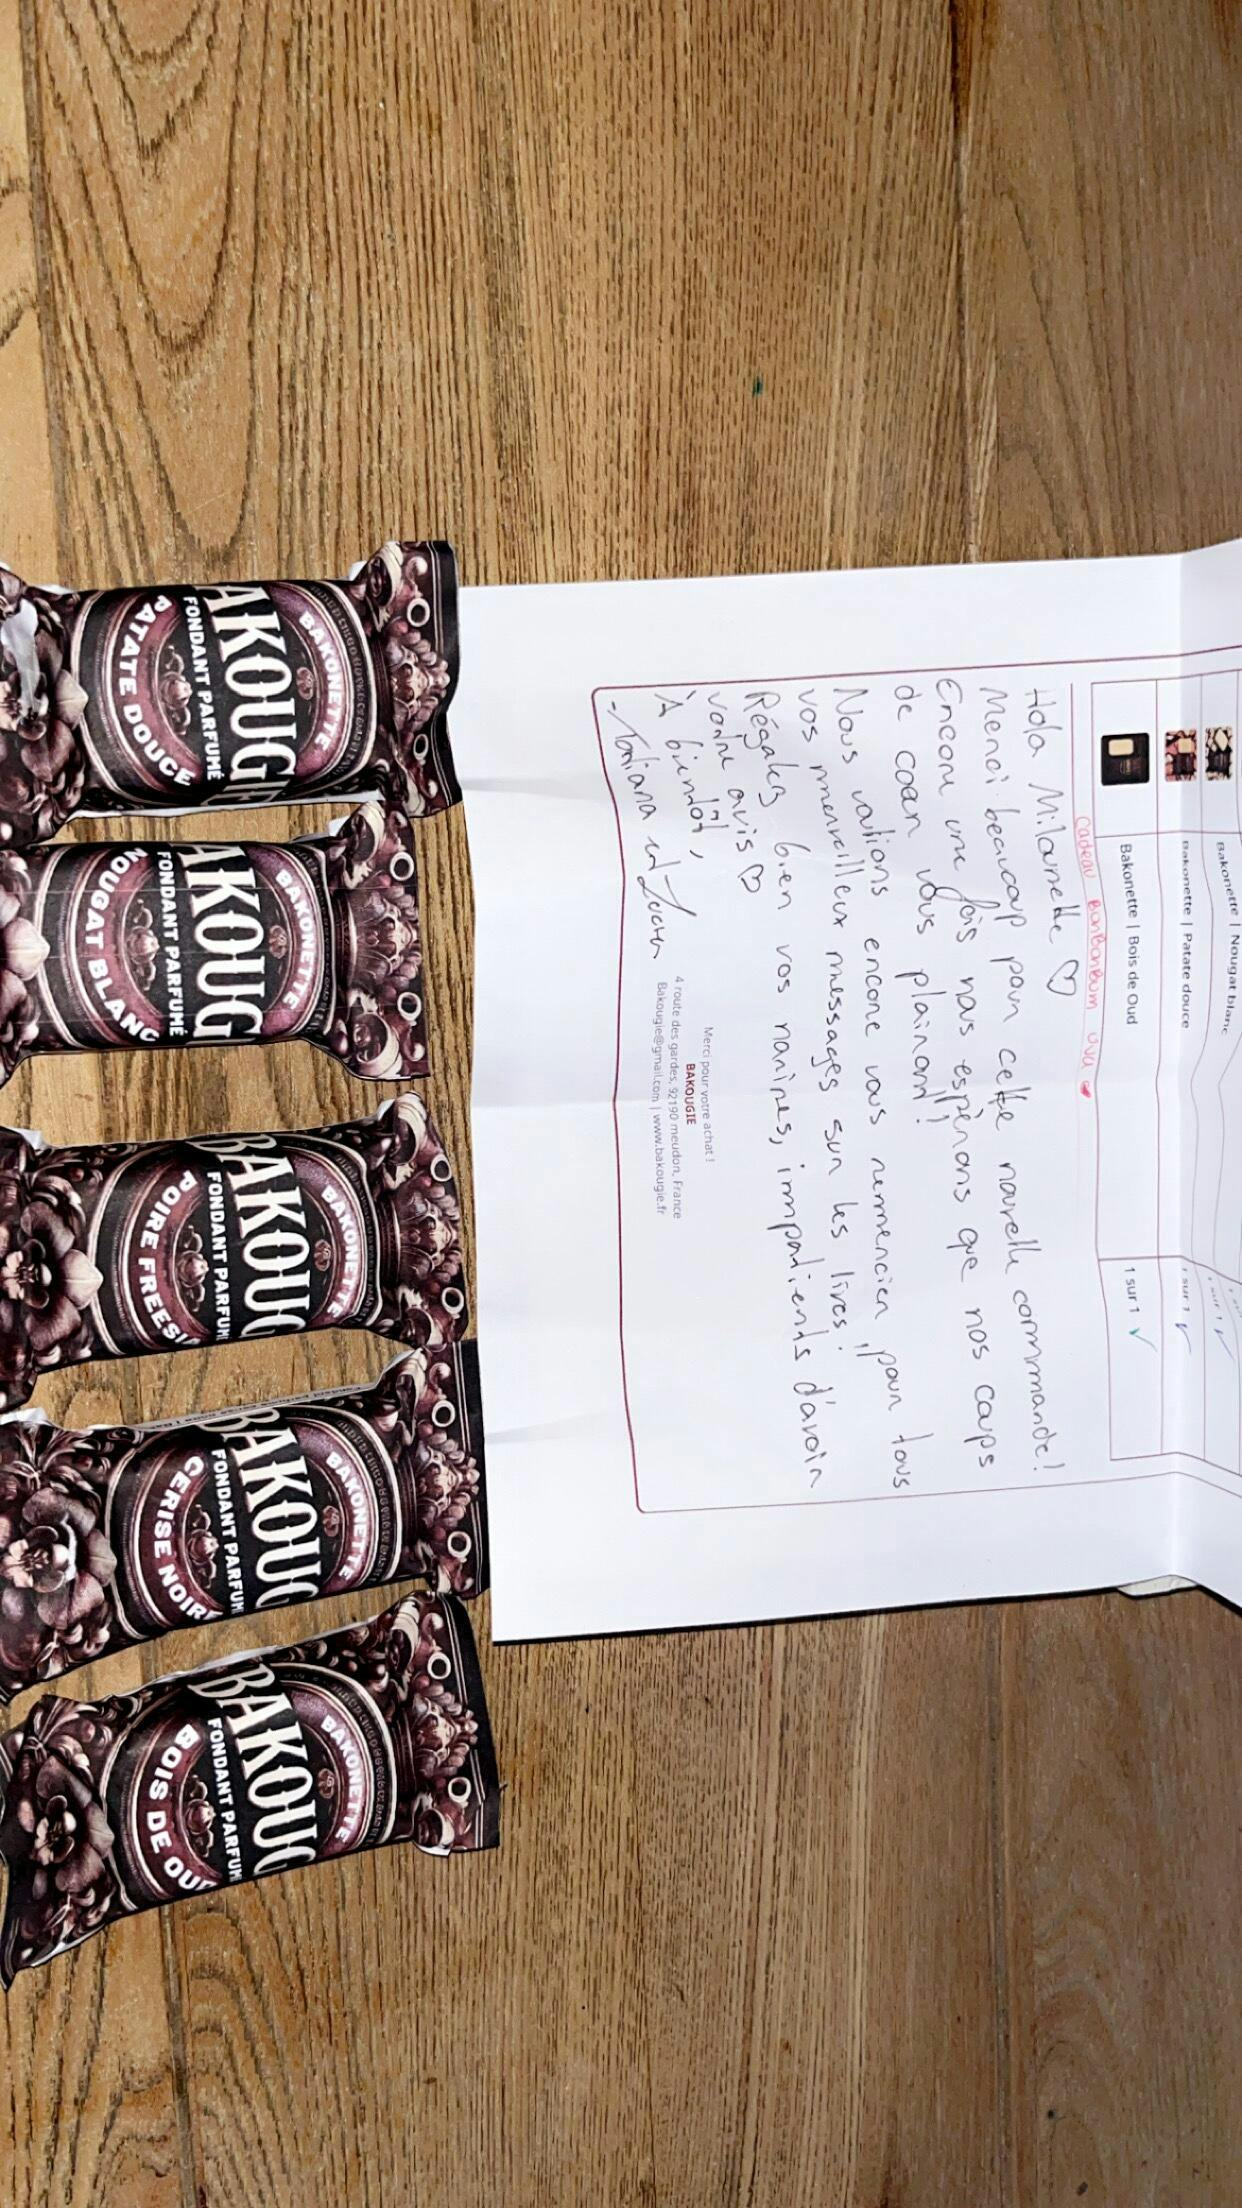 Bakonette | Nougat blanc
1 sur 1
Bakonette | Patate douce
1 sur 1
Bakonette | Bois de Oud
1 sur 1
Cadeau BonBonBum uva
Hola Milounette
Merci beaucoup pour cette nouvelle commande!
Encore une fois nous espérons que nos coups
de cœur vous plairont!
Nous voulions encore vous remercier pour tous
vos merveilleux messages sur les lives!
Régalez bien vos narines, impatients d'avoir
votre avis
À bientôt,
Merci pour votre achat !
BAKOUGIE
4 route des gardes, 92190 meudon, France
Bakougie@gmail.com | www.bakougie.fr
BAKONETTE
AKOUG
FONDANT PARFUMÉ
PATATE DOUCE
BAKONETTE
AKOUG
FONDANT PARFUMÉ
NOUGAT BLANC
BAKONETTE
BAKOUG
FONDANT PARFUM
POIRE FREESI
BAKONETTE
BAKOUG
FONDANT PARFUM
CERISE NOIR
BAKONETTE
BAKOUG
FONDANT PARFUM
BOIS DE OU